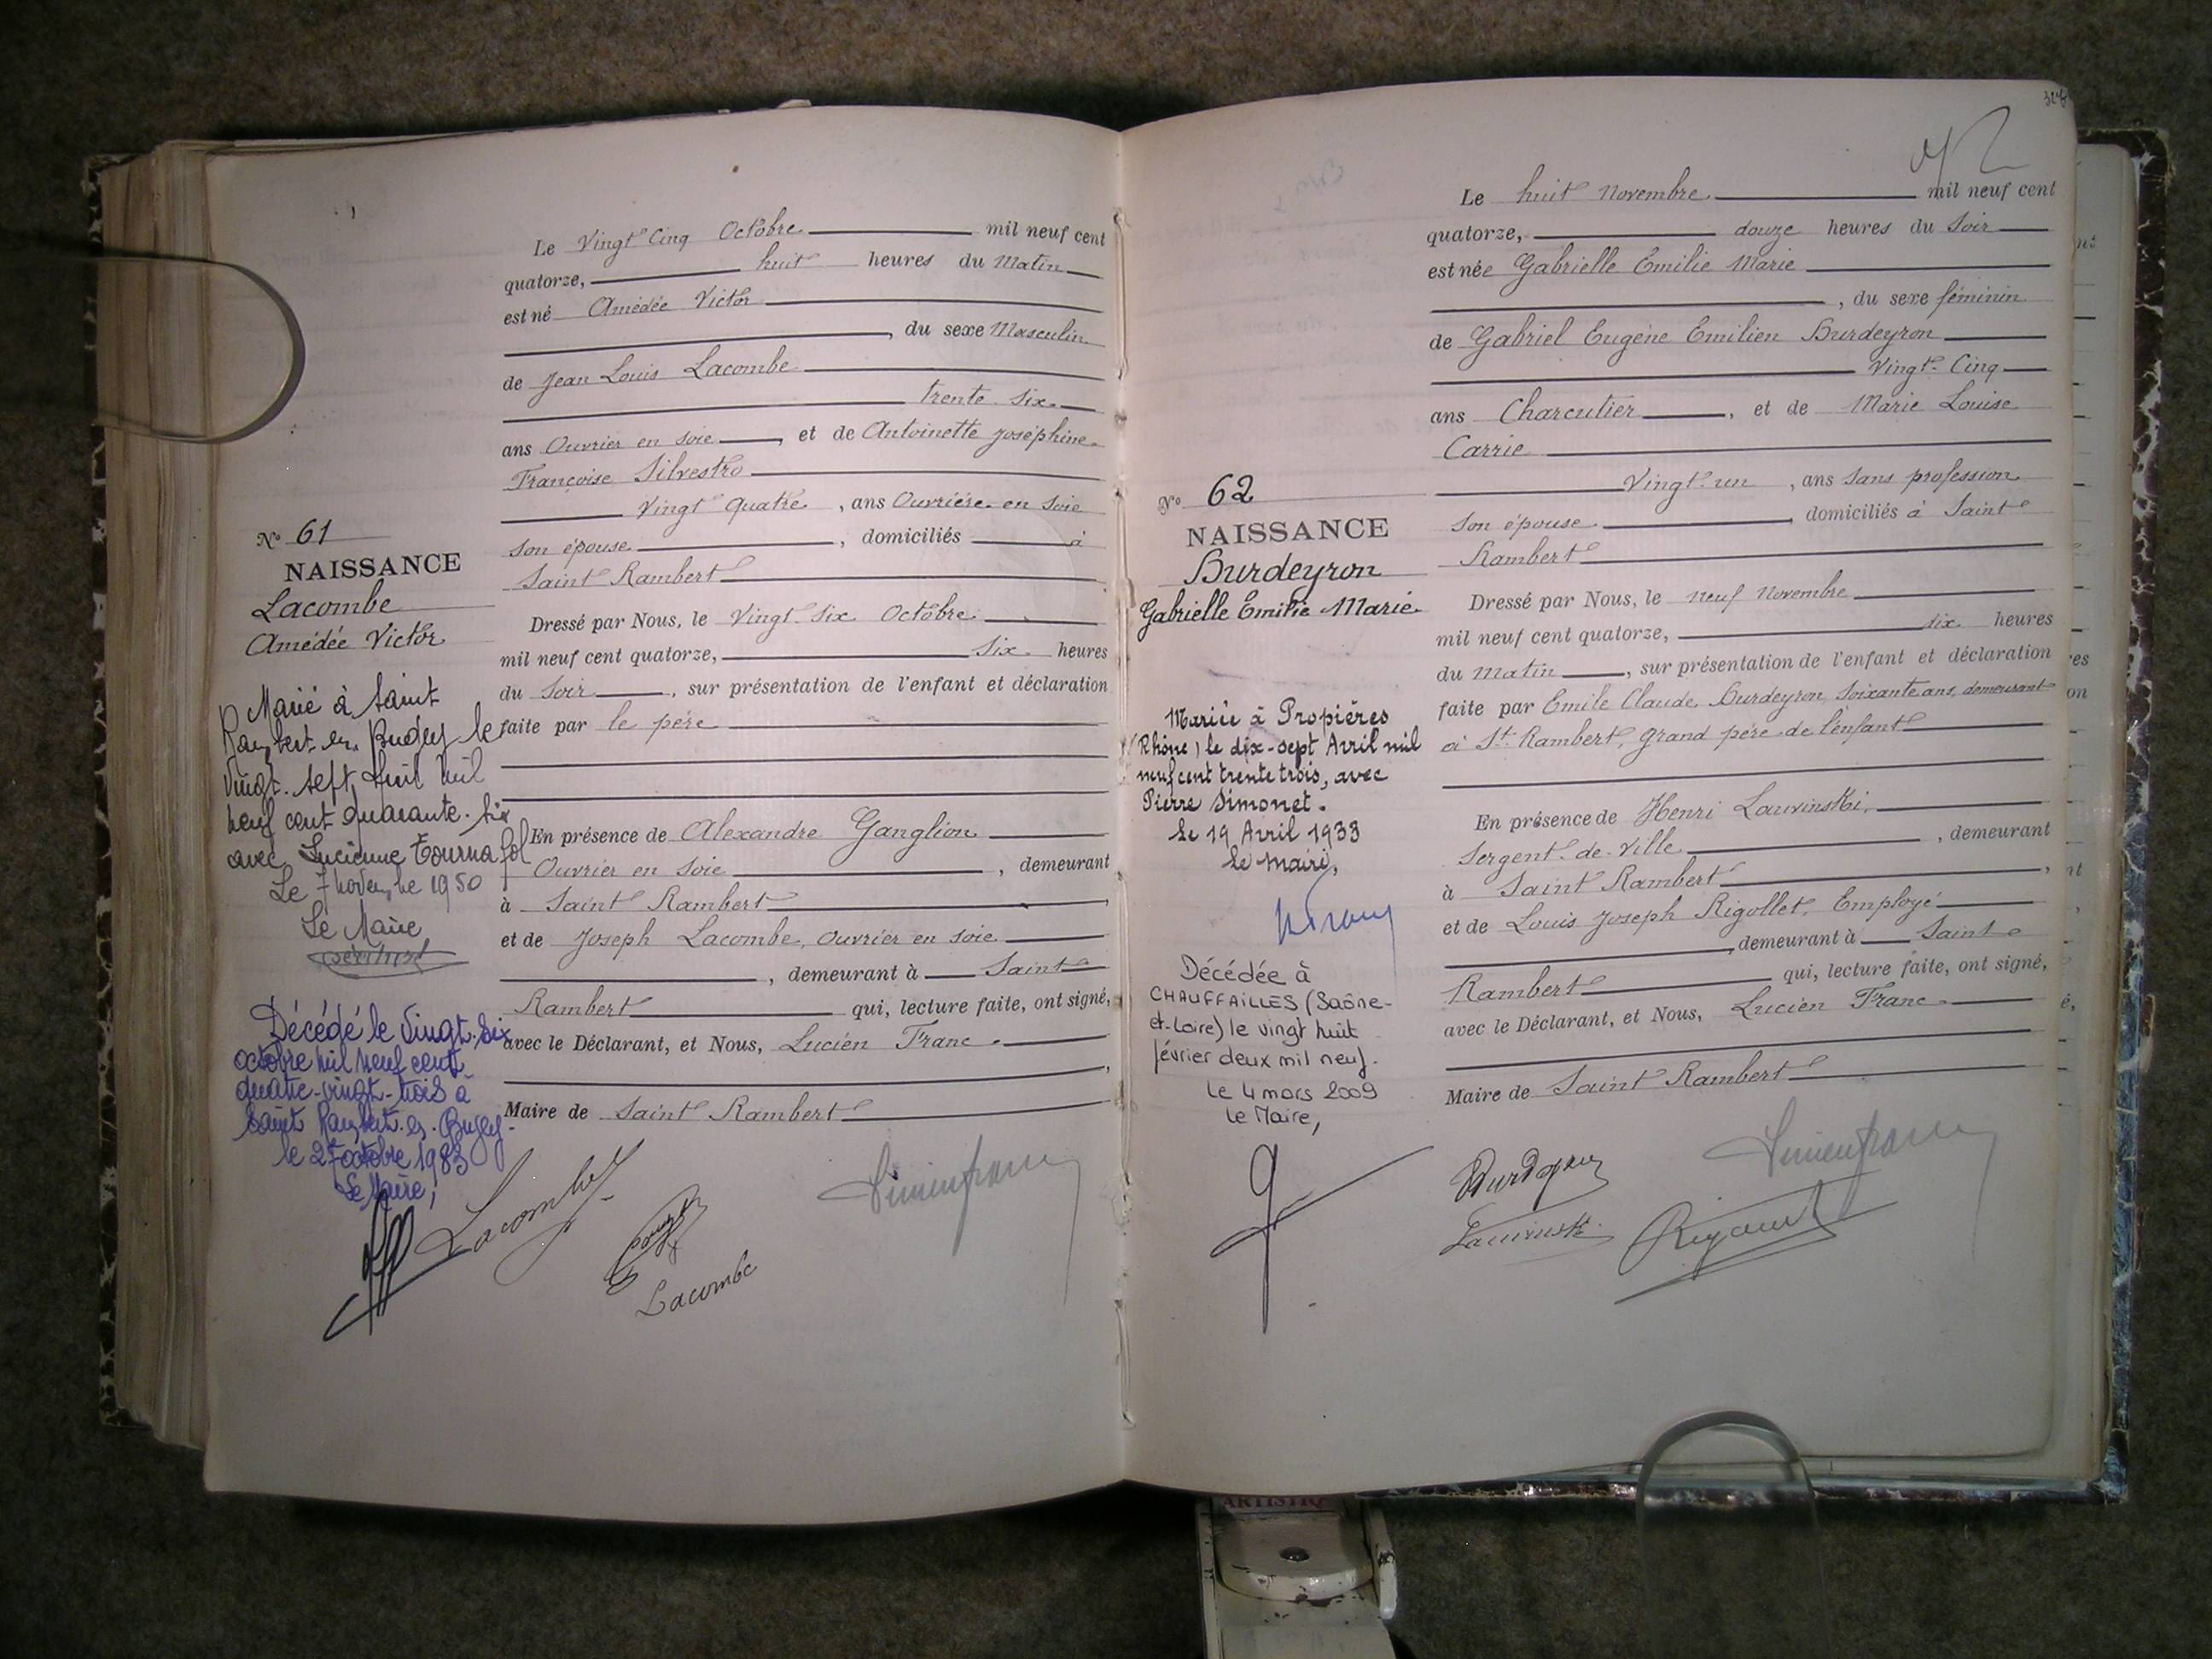 Le Vingt Cinq Octobre mil neuf cent
quatorze, huit heures du Matin
est né Amédée Victor
, du sexe Masculin
de Jean Louis Lacombe
trente six
ans Ouvrier en soie, et de Antoinette Joséphine
Françoise Silvestro
Vingt quatre, ans Ouvrière en soie
son épouse, domiciliés à
Saint Rambert
Dressé par Nous, le Vingt six Octobre
mil neuf cent quatorze, six heures
du soir, sur présentation de l'enfant et déclaration
faite par le père
En présence de Alexandre Ganglion
Ouvrier en soie, demeurant
à Saint Rambert
et de Joseph Lacombe, Ouvrier en soie
, demeurant à Saint
Rambert qui, lecture faite, ont signé,
avec le Déclarant, et Nous, Lucien Franc
Maire de Saint Rambert
N° 61
NAISSANCE
Lacombe
Amédée Victor
Marié à Saint
Rambert en Bugey le
vingt-sept Avril mil
neuf cent quarante-six
avec Lucienne Tournafol
Le 7 novembre 1950
Le Maire
Décédé le vingt-six
octobre mil neuf cent
quatre-vingt-trois à
Saint Rambert-en-Bugey-
le 27 octobre 1983
Le Maire,
Lacombe
Lacombe
Lucien Franc
Le huit Novembre mil neuf cent
quatorze, douze heures du Soir
est née Gabrielle Emilie Marie
, du sexe féminin
de Gabriel Eugène Emilien Burdeyron
Vingt-Cinq
ans Charcutier, et de Marie Louise
Carrie
Vingt-un, ans sans profession
son épouse, domiciliés à Saint
Rambert
Dressé par Nous, le neuf Novembre
mil neuf cent quatorze, dix heures
du Matin, sur présentation de l'enfant et déclaration
faite par Emile Claude Burdeyron, Soixante ans, demeurant
à St Rambert, grand père de l'enfant
En présence de Henri Lauvinski,
Sergent-de-Ville, demeurant
à Saint Rambert,
et de Louis Joseph Rigollet, Employé
, demeurant à Saint
Rambert qui, lecture faite, ont signé,
avec le Déclarant, et Nous, Lucien Franc
Maire de Saint Rambert
N° 62
NAISSANCE
Burdeyron
Gabrielle Emilie Marie
Mariée à Propières
(Rhône) le dix-sept Avril mil
neuf cent trente trois, avec
Pierre Simonet.
Le 19 Avril 1933
Le Maire,
Décédée à
CHAUFFAILLES (Saône-
et-Loire) le vingt huit
février deux mil neuf.
Le 4 mars 2009
Le Maire,
Burdeyron
Lucien Franc
Lauvinski
ARTISTIQ